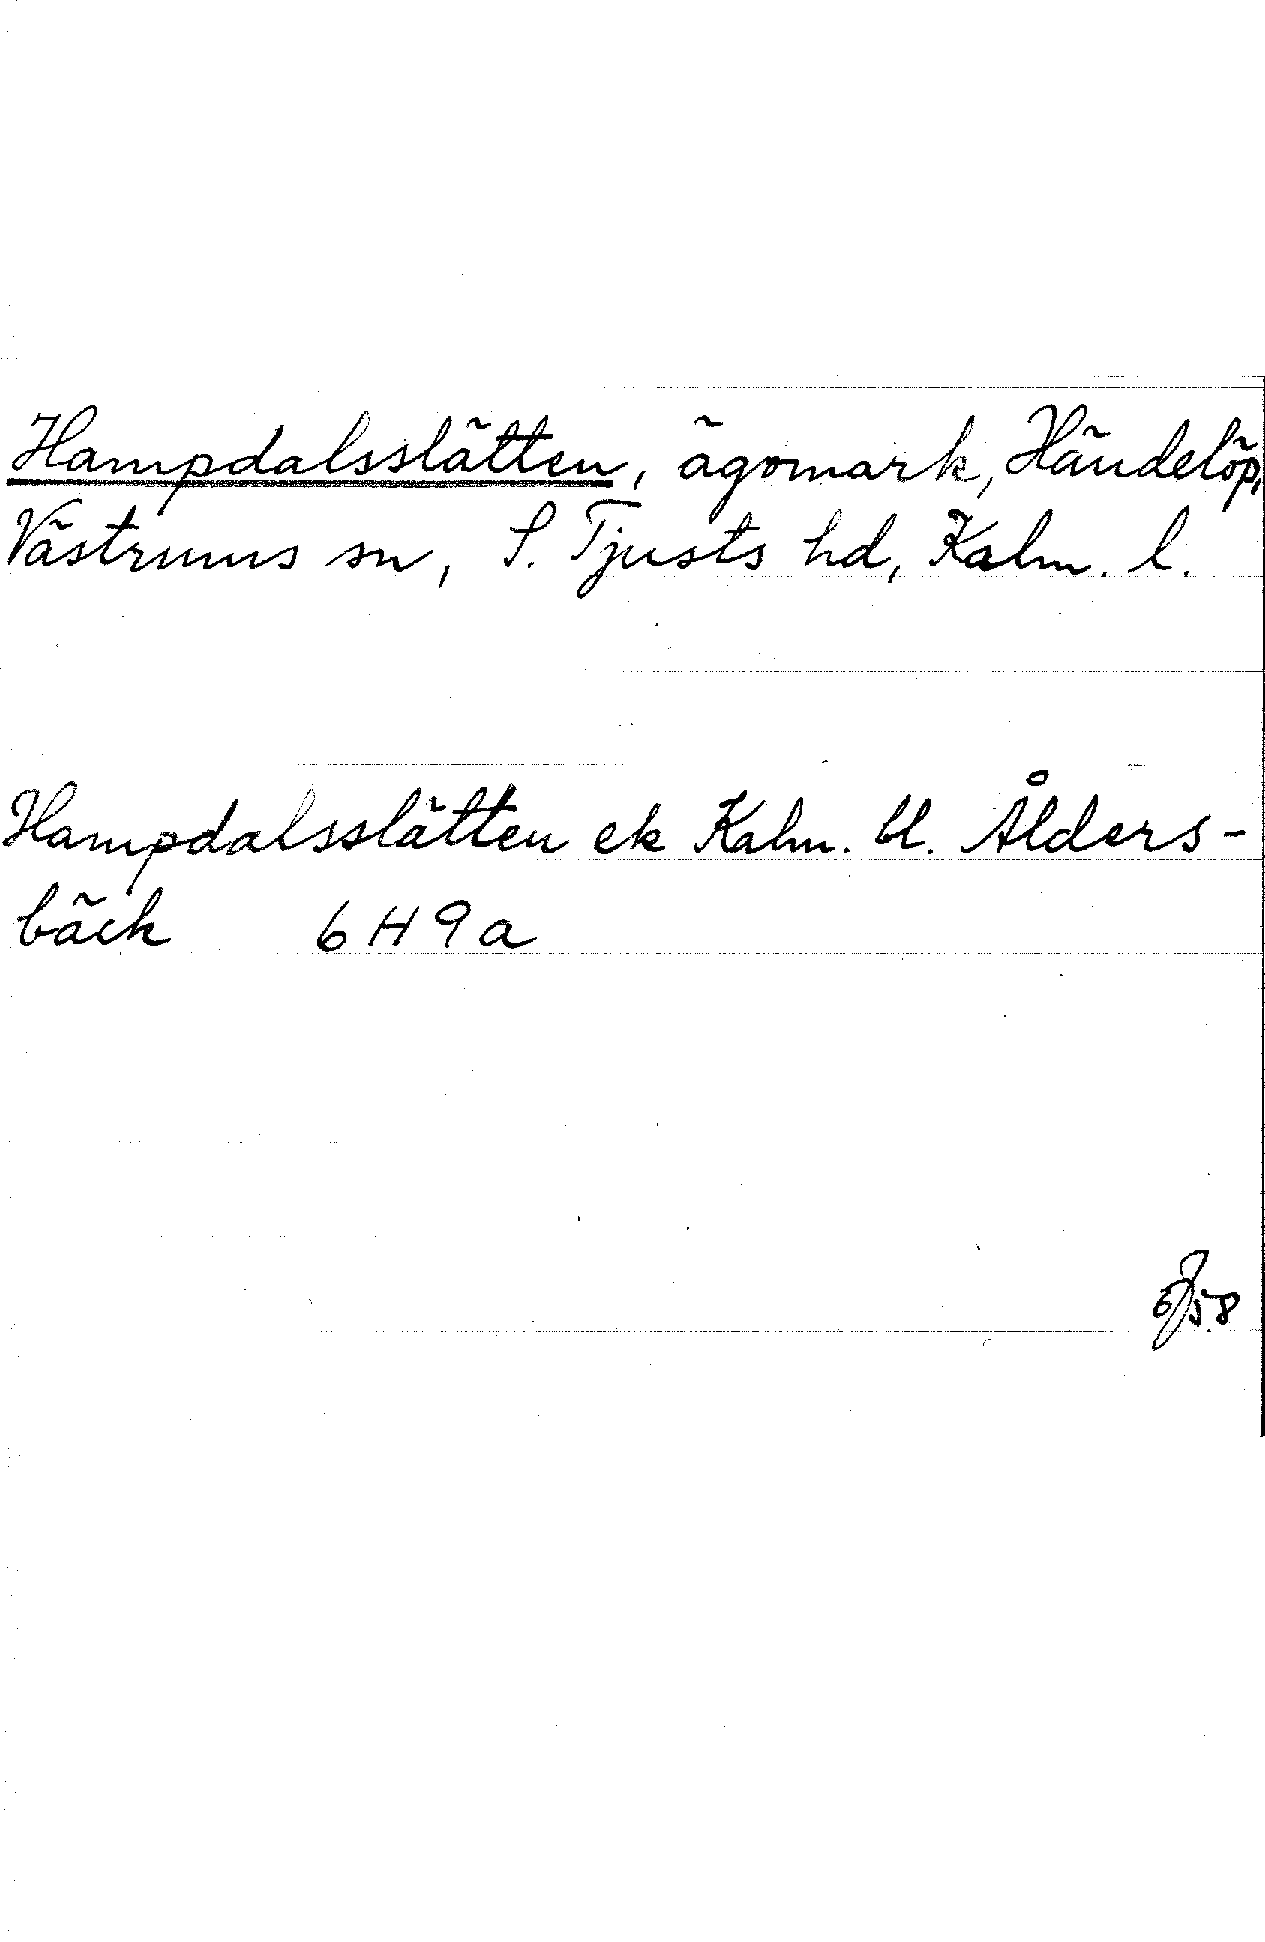 Hampdalsslätten, ägomark, Händelöp,
Västrums sn, S. Tjusts hd, Kalm. l.
Hampdalsslätten ek Kalm. bl. Ålders-
bäck 6H9a
58